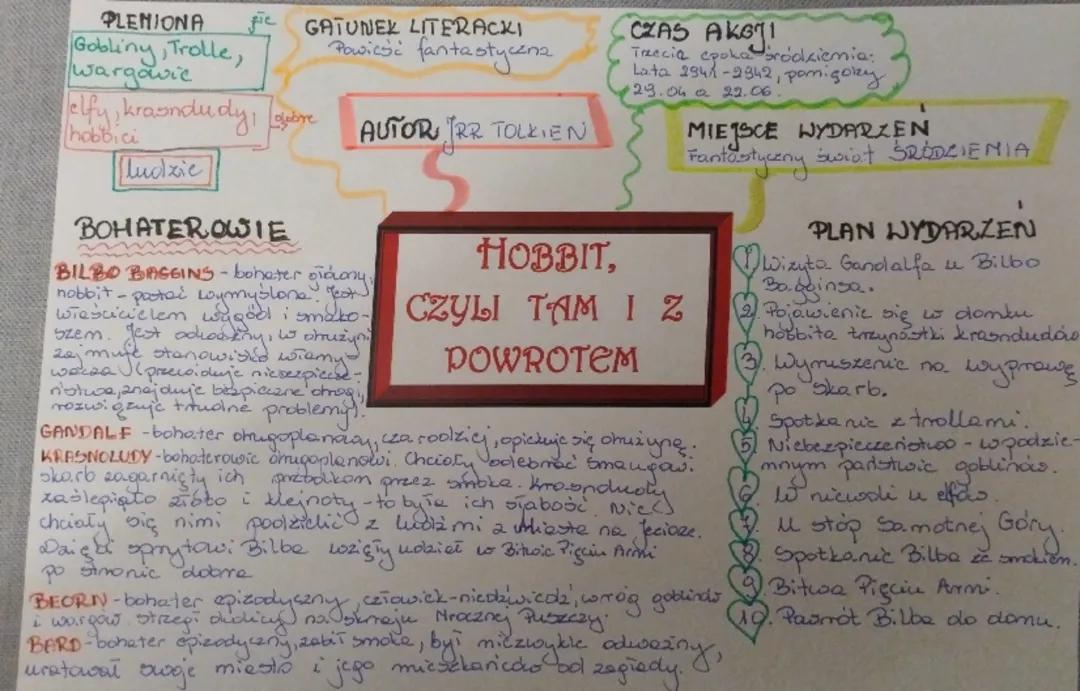 PLEMIONA
złe
Gobliny, Trolle,
Wargowie
elfy, krasnoludy,
hobbici
dobre
ludzie
GATUNEK LITERACKI
Powieść fantastyczna
CZAS AKCJI
Trzecia epoka śródziemia:
Lata 2941-2942, pomiędzy
29.04 a 22.06.
AUTOR JRR TOLKIEN
MIEJSCE WYDARZEŃ
Fantastyczny świat ŚRÓDZIEMIA
HOBBIT,
CZYLI TAM I Z
POWROTEM
BOHATEROWIE
BILBO BAGGINS - bohater główny,
hobbit - postać wymyślona. Jest
wielbicielem wygód i smako-
szem. Jest odważny, w drużynie
zajmuje stanowisko włamy-
wacza (przewiduje niebezpiecze-
ństwa, znajduje bezpieczne drogi,
rozwiązuje trudne problemy).
GANDALF - bohater drugoplanowy, czarodziej, opiekuje się drużyną.
KRASNOLUDY - bohaterowie drugoplanowi. Chciały odebrać Smaugowi
skarb zagarnięty ich przodkom przez smoka. Krasnoludy
zaślepiało złoto i klejnoty - to była ich słabość. Nie
chciały się nimi podzielić z ludźmi z Miasta na Jeziorze.
Dzięki sprytowi Bilba wzięły udział w Bitwie Pięciu Armi
po stronie dobra
BEORN - bohater epizodyczny, człowiek-niedźwiedź, wróg goblinów
i wargów. Strzegł okolicy na skraju Mrocznej Puszczy.
BARD - bohater epizodyczny, zabił smoka, był niezwykle odważny,
uratował swoje miasto i jego mieszkańców od zagłady.
PLAN WYDARZEŃ
1. Wizyta Gandalfa u Bilbo
Bagginsa.
2. Pojawienie się w domku
hobbita trzynastki krasnoludów
3. Wyruszenie na wyprawę
po skarb.
4. Spotkanie z trollami.
5. Niebezpieczeństwo - w podzie-
mnym państwie goblinów.
6. W niewoli u elfów.
7. U stóp Samotnej Góry.
8. Spotkanie Bilba ze smokiem.
9. Bitwa Pięciu Armi.
10. Powrót Bilba do domu.